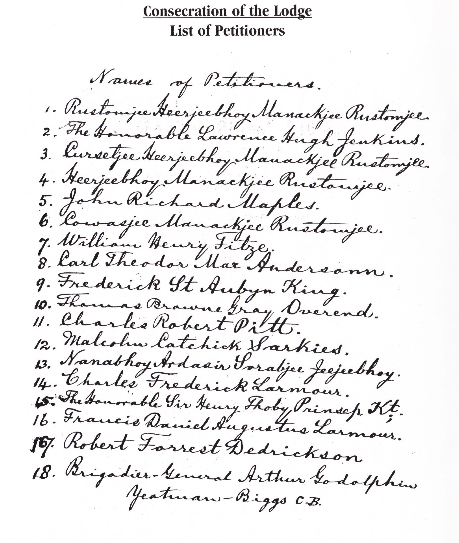 Consecration of the Lodge
List of Petitioners
Names of Petitioners.
1. Rustomjee Heerjeebhoy Manackjee Rustomjee.
2. The Honorable Lawrence Hugh Jenkins.
3. Cursetjee Heerjeebhoy Manackjee Rustomjee.
4. Heerjeebhoy Manackjee Rustomjee.
5. John Richard Maples.
6. Cowasjee Manackjee Rustomjee.
7. William Henry Fitze.
8. Carl Theodor Max Andersonn.
9. Frederick St Aubyn King.
10. Thomas Browne Gray Overend.
11. Charles Robert Pitt.
12. Malcolm Catchick Sarkies.
13. Nanabhoy Ardasir Sorabjee Jeejeebhoy.
14. Charles Frederick Larmour.
15. The Honorable Sir Henry Thoby Prinsep Kt.
16. Francis Daniel Augustus Larmour.
17. Robert Forrest Dedrickson
18. Brigadier-General Arthur Godolphin
Yeatman-Biggs C.B.